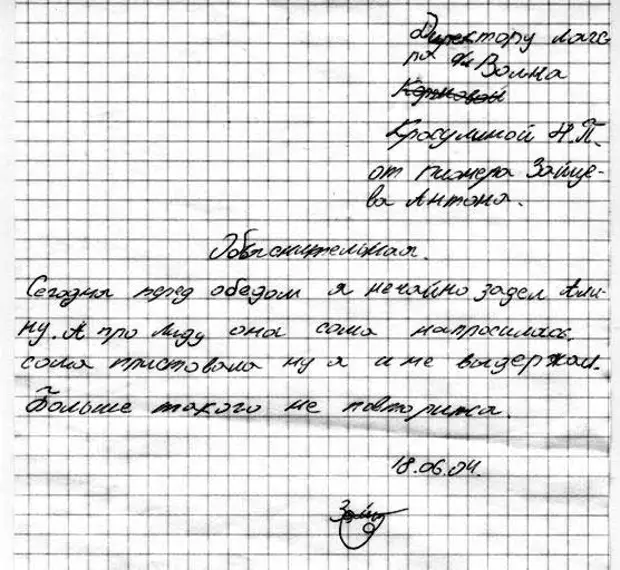 Директору лаге
ря д/л Волна
Красулиной Н.П.
от пионера Зайце-
ва Антона.
Объяснительная.
Сегодня перед обедом я нечайно задел Али-
ну. А про Лиду она сама напросилась.
сама пристовала ну я и не выдержал.
Больше такого не повторица.
18.06.04.